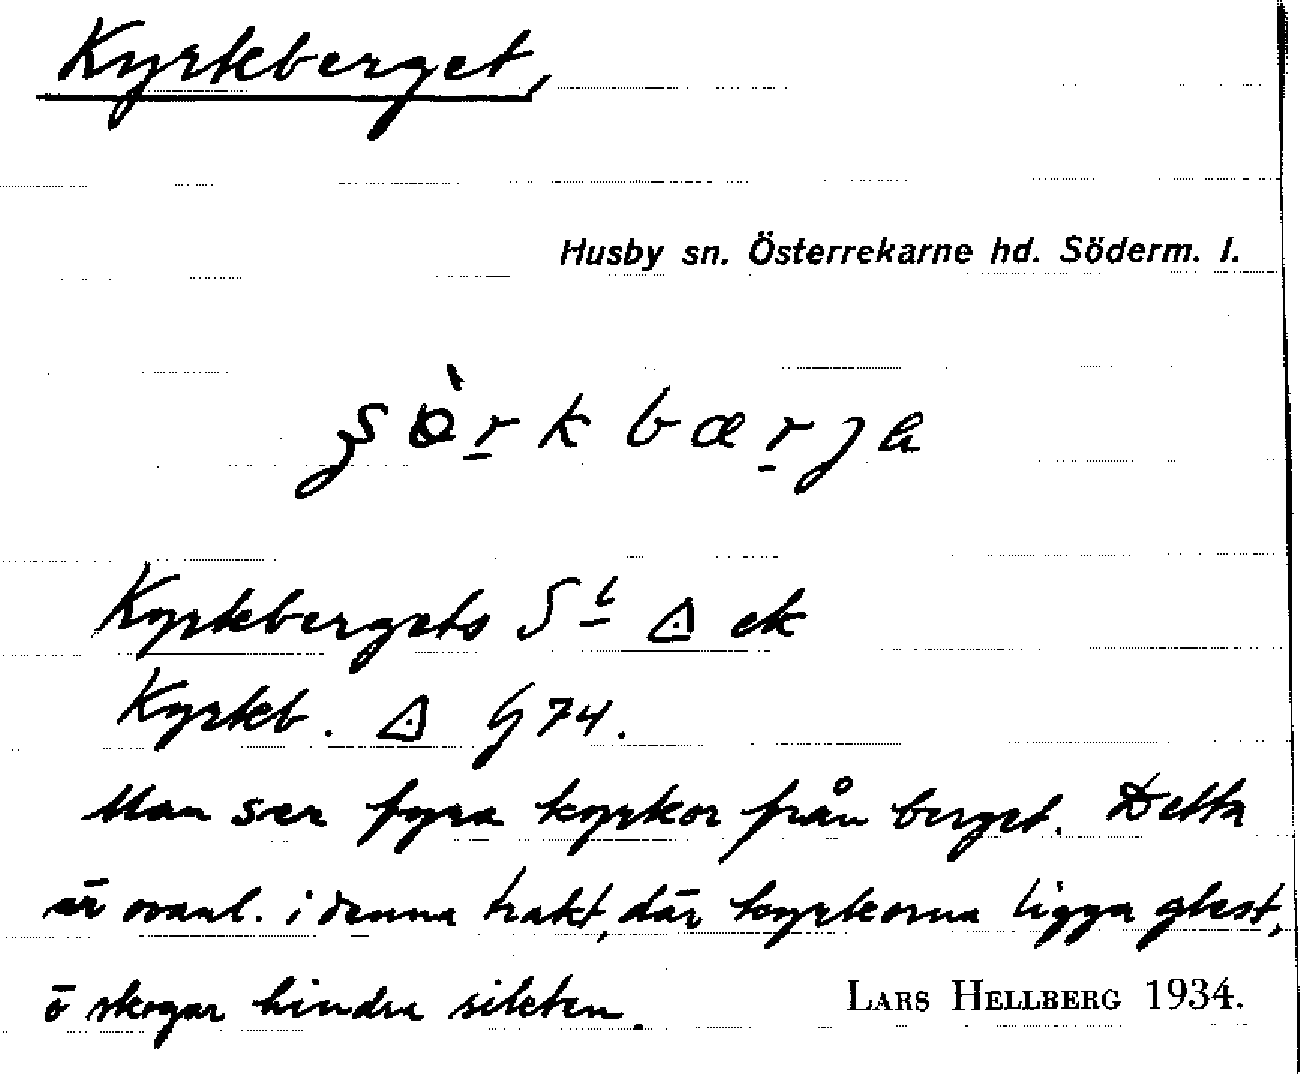 Kyrkberget,
Husby sn. Österrekarne hd. Söderm. l.
Kyrkbergets S:t ek
Kyrkb. G 74.
Man ser fyra kyrkor från berget. Detta
är ovanl. i denna trakt, där kyrkorna ligga glest,
o skogar hindra sikten.
LARS HELLBERG 1934.